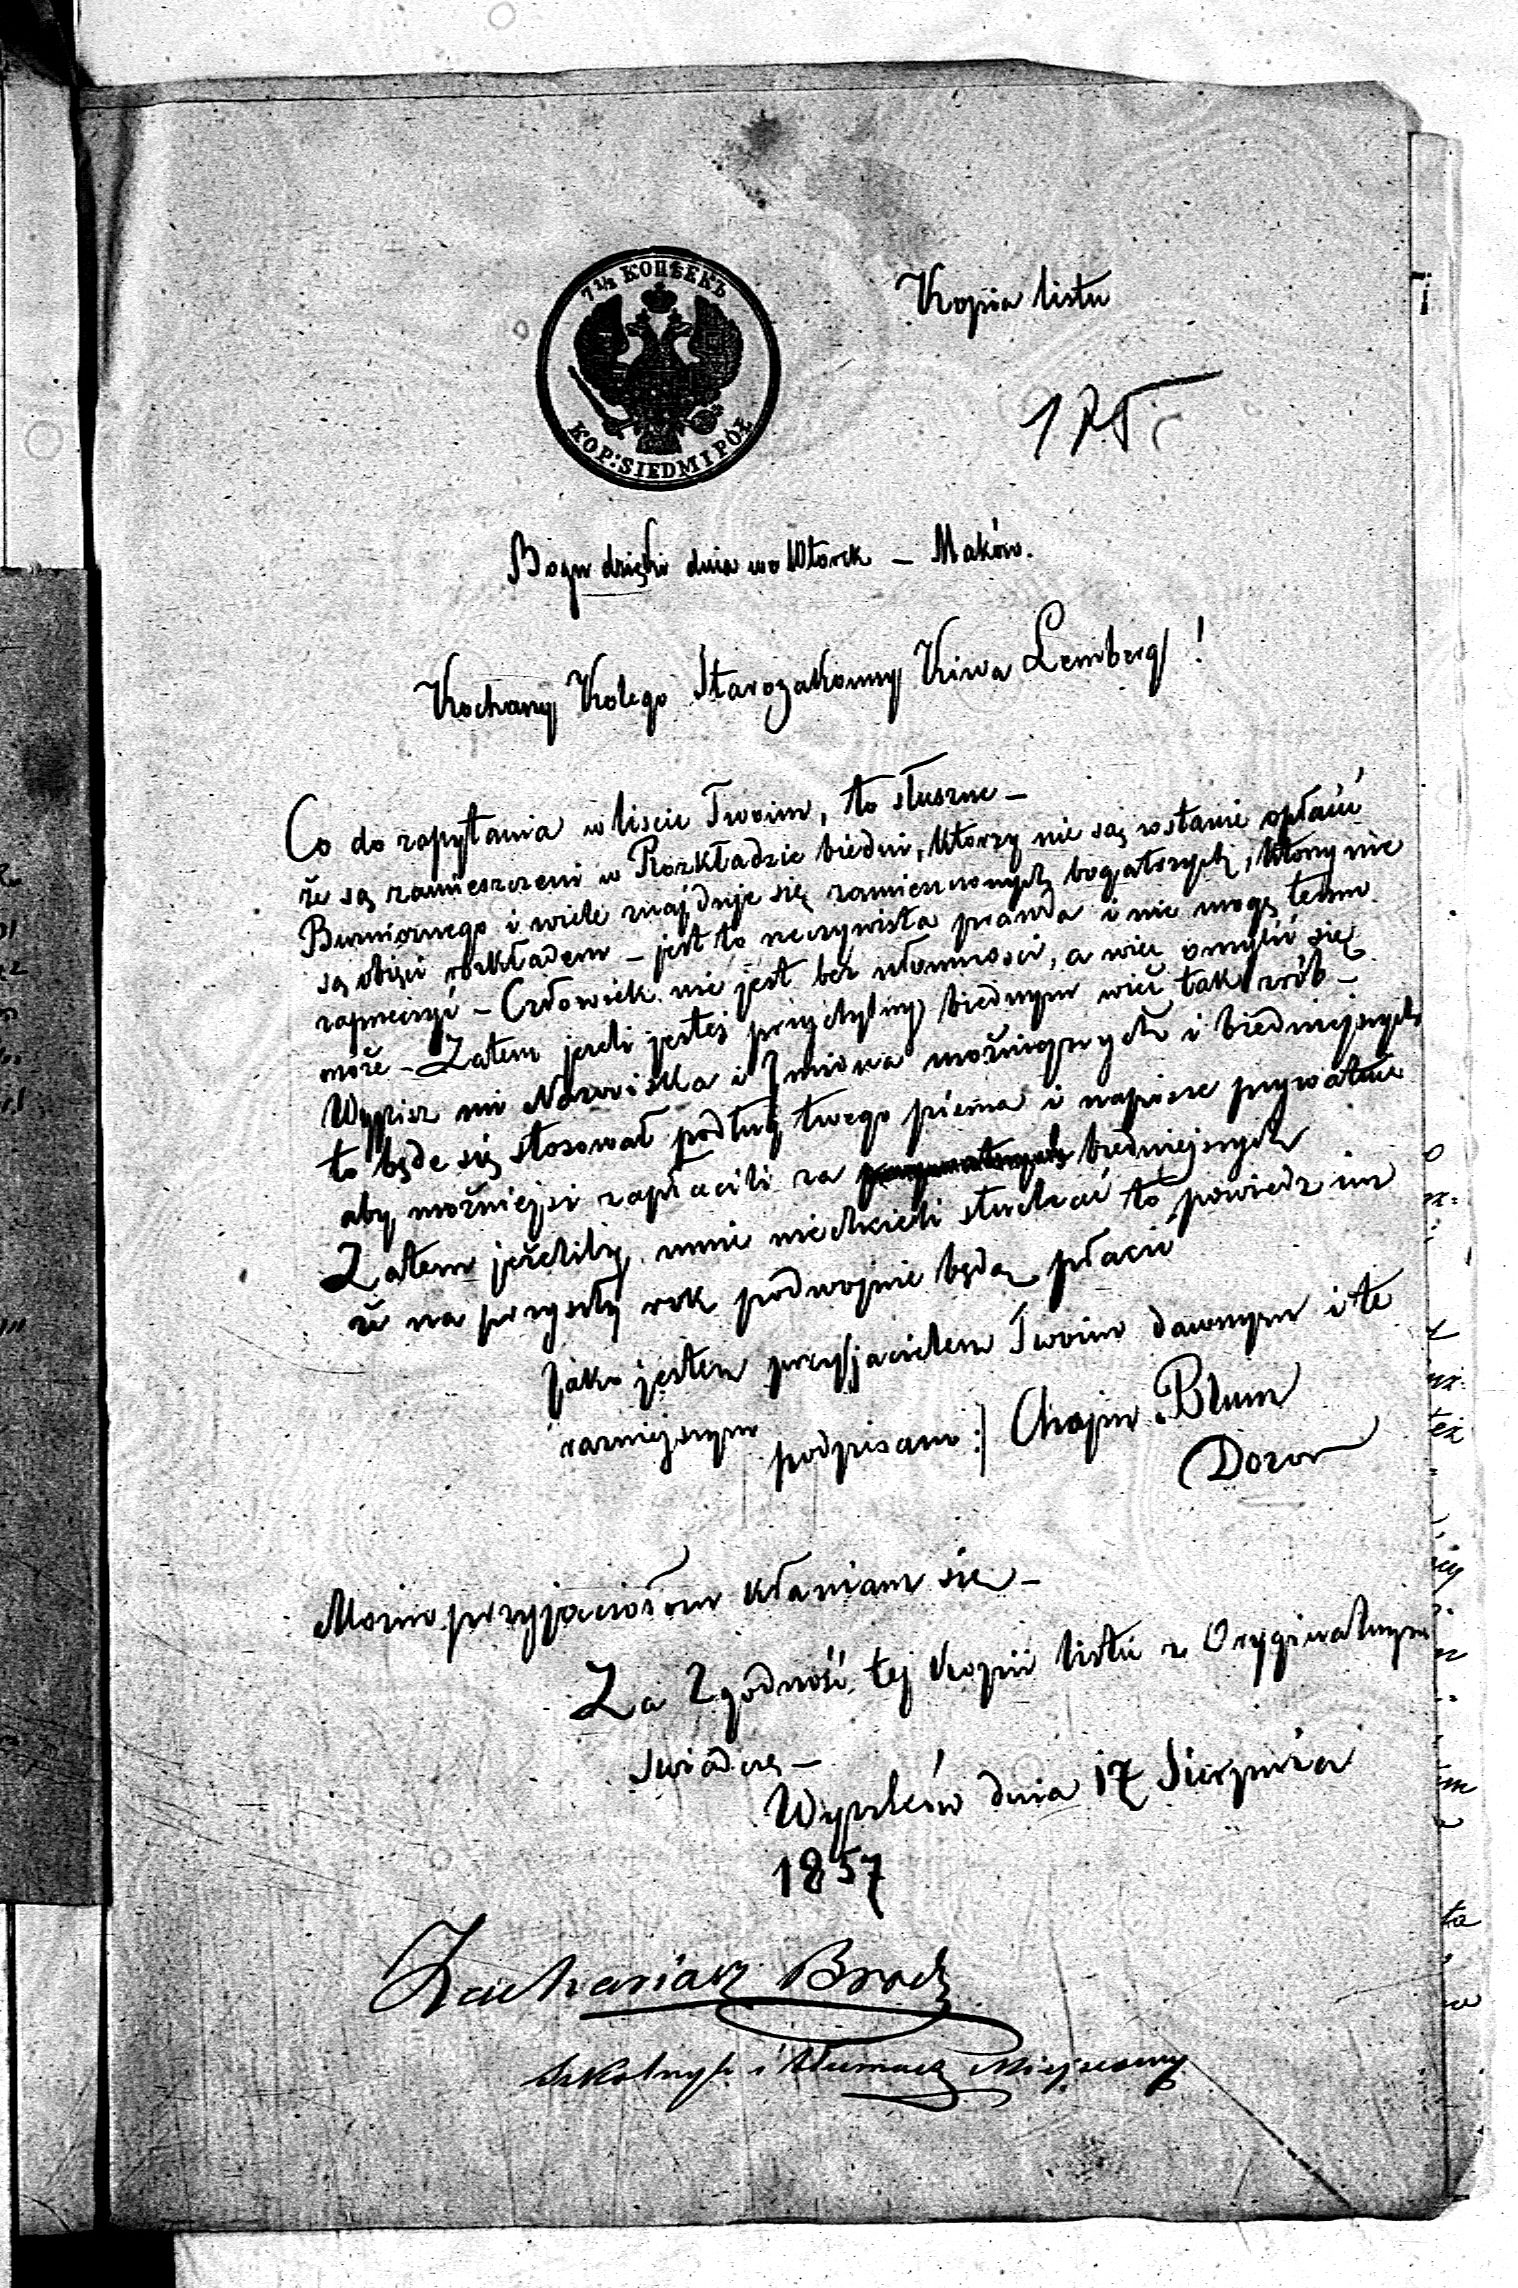 7 1/2 КОПѢЕКЪ
KOP: SIEDM I PÓŁ
Kopia listu
Bogu dzięki dnia we Wtorek – Maków.
Kochany Kolego Starozakonny Kiwa Lemberg!
Co do zapytania w liscie Twoim, to słuszne –
że są zamieszczeni w Rozkładzie biedni, którzy nie są wstanie opłacić
i wiele znajduje się zamieszczonych bogatszych, którzy nie
są objęci rozkładem – jest to rzeczywista prawda i nie mogę temu
zaprzeczyć – Człowiek nie jest bez ułomności, a więc omylić się
może – Zatem jeseli jesteś przychylny biednym więc tak zrób –
Wypisz mi Nazwiska i Imiona możniejszych i biedniejszych
to będe się stosował podług twego pisma i napisze prywatnie
aby możniejsi zapłacili za biedniejszych
Zatem jeżeliby mnie niechcieli słuchać to powiedz im
że na przyszły rok podwojnie będą płacić
Jako jestem przyjacielem Twoim dawnym i te
razniejszym
podpisano:/ Chajm Blum
Dozor
Moim przyjaciołom kłaniam się –
Za Zgodność tej kopii listu z Oryginalnym
swiadczę –
Wyszków dnia 17 Sierpnia
1857
Zachariasz Brock
Szkolnyk i tłumacz Miejscowy